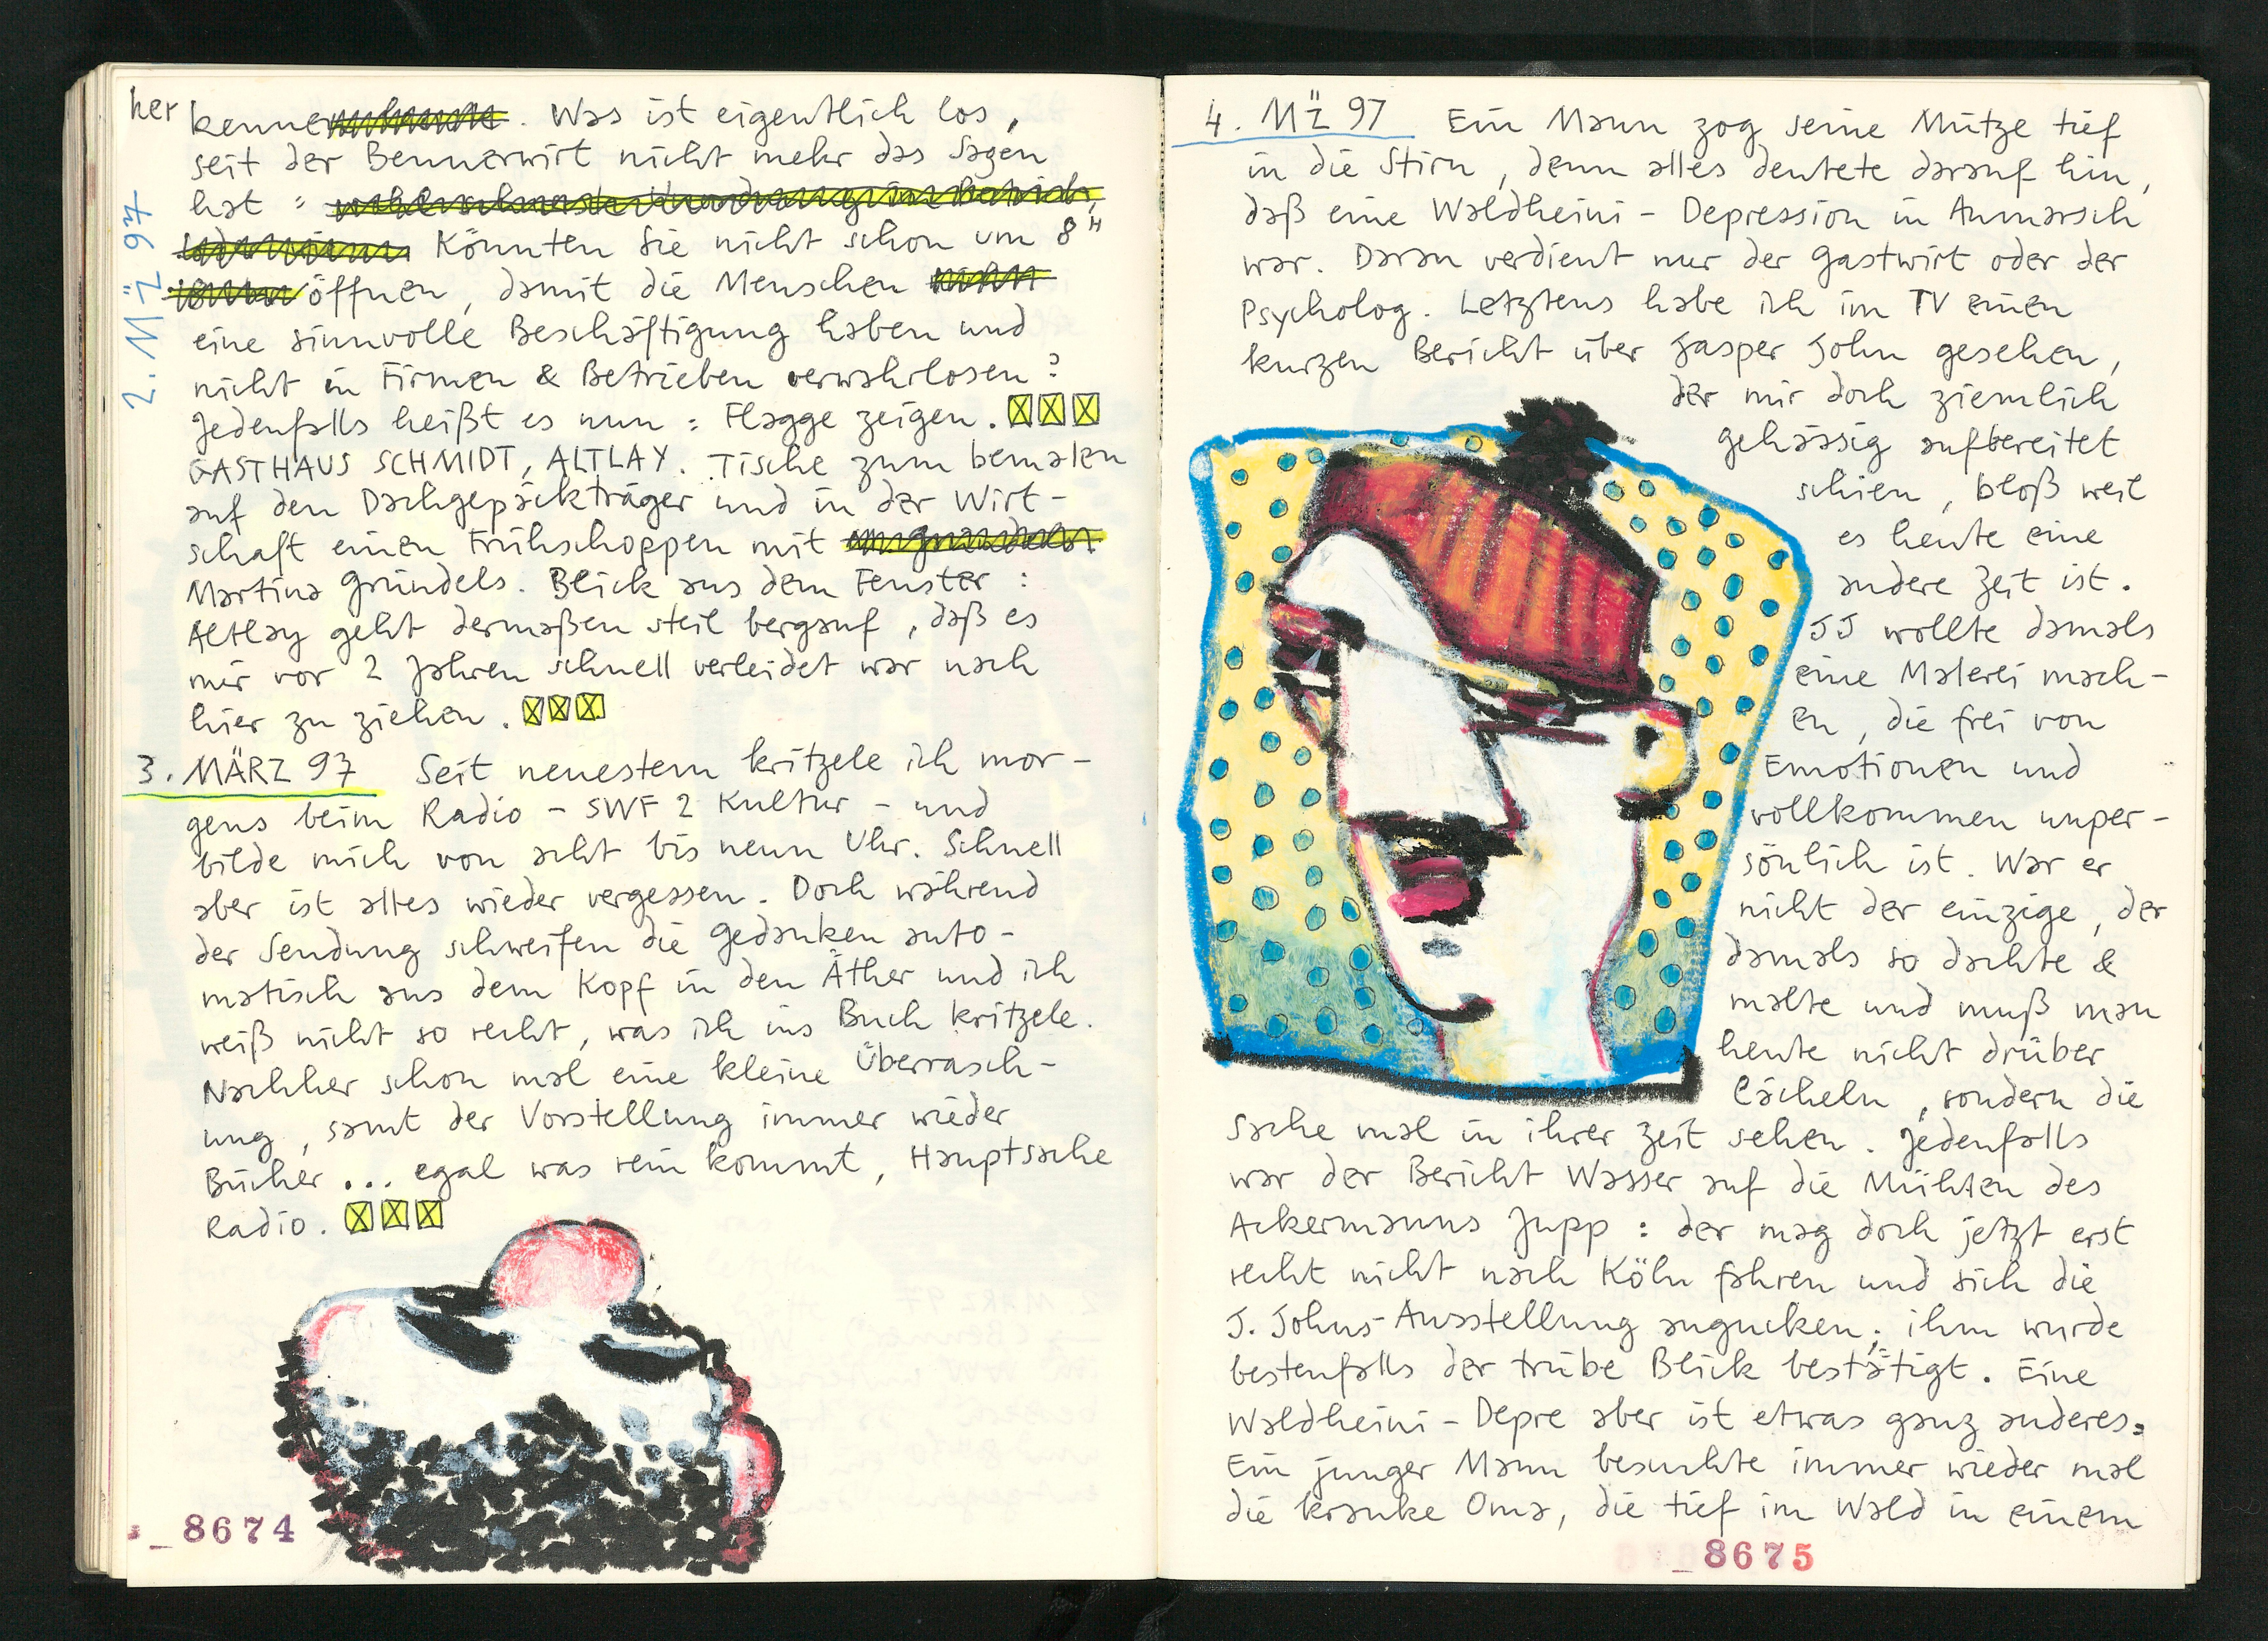 her kenne. Was ist eigentlich los,
seit der Bennerwirt nicht mehr das Sagen
hat :
Könnten Sie nicht schon um 8"
öffnen, damit die Menschen
eine sinnvolle Beschäftigung haben und
nicht in Firmen & Betrieben verwahrlosen?
Jedenfalls heißt es nun : Flagge zeigen.
GASTHAUS SCHMIDT, ALTLAY. Tische zum bemalen
auf den Dachgepäckträger und in der Wirt-
schaft einen Frühschoppen mit
Martina Gründels. Blick aus dem Fenster :
Altlay geht dermaßen steil bergauf, daß es
mir vor 2 Jahren schnell verleidet war nach
hier zu ziehen.
2. MÄZ 97
3. MÄRZ 97 Seit neuestem kritzele ich mor-
gens beim Radio - SWF 2 Kultur - und
bilde mich von acht bis neun Uhr. Schnell
aber ist alles wieder vergessen. Doch während
der Sendung schweifen die Gedanken auto-
matisch aus dem Kopf in den Äther und ich
weiß nicht so recht, was ich ins Buch kritzele.
Nachher schon mal eine kleine Überrasch-
ung, samt der Vorstellung immer wieder
Bücher ... egal was rein kommt, Hauptsache
Radio.
_8674
4. MÄZ 97 Ein Mann zog seine Mütze tief
in die Stirn, denn alles deutete darauf hin,
daß eine Waldheini - Depression in Anmarsch
war. Daran verdient nur der Gastwirt oder der
Psycholog. Letztens habe ich im TV einen
kurzen Bericht über Jasper John gesehen,
der mir doch ziemlich
gehässig aufbereitet
schien, bloß weil
es heute eine
andere Zeit ist.
JJ wollte damals
eine Malerei mach-
en, die frei von
Emotionen und
vollkommen unper-
sönlich ist. War er
nicht der einzige, der
damals so dachte &
malte und muß man
heute nicht drüber
lächeln, sondern die
Sache mal in ihrer Zeit sehen. Jedenfalls
war der Bericht Wasser auf die Mühlen des
Ackermanns Jupp : der mag doch jetzt erst
recht nicht nach Köln fahren und sich die
J. Johns-Ausstellung angucken; ihm wurde
bestenfalls der trübe Blick bestätigt. Eine
Waldheini - Depre aber ist etwas ganz anderes:
Ein junger Mann besuchte immer wieder mal
die kranke Oma, die tief im Wald in einem
_8675